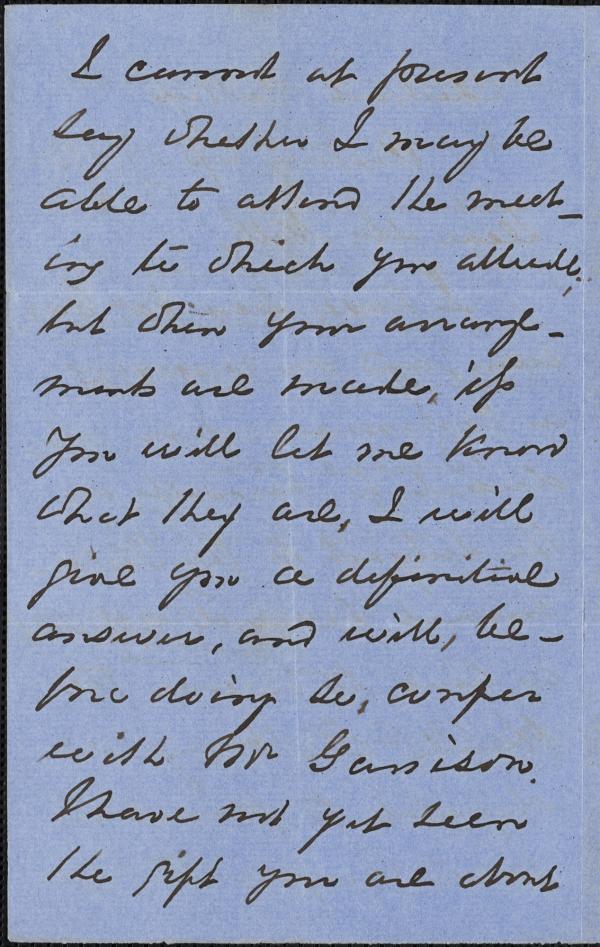 I cannot at present
say whether I may be
able to attend the meet-
ing to which you allude,
but when your arrange-
ments are made, if
you will let me know
what they are, I will
give you a definitive
answer, and will, be-
fore doing so, confer
with Mr Garrison.
I have not yet seen
the gift you are about